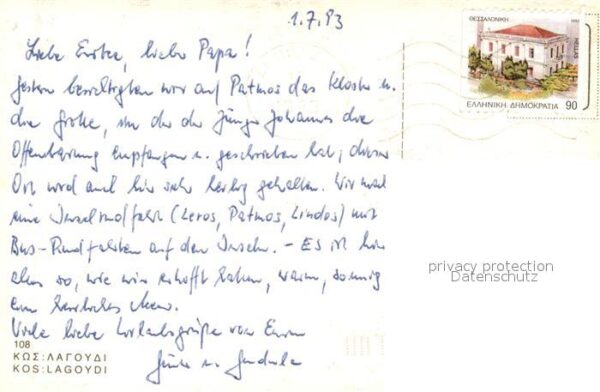 1.7.93
ΘΕΣΣΑΛΟΝΙΚΗ
HELLAS
ΕΛΛΗΝΙΚΗ ΔΗΜΟΚΡΑΤΙΑ 90
Liebe, lieber Papa!
gestern besichtigten wir auf Patmos das Kloster u.
die Grotte, in der der Jünger Johannes die
Offenbarung empfangen u. geschrieben hat; dieser
Ort wird auch hier sehr heilig gehalten. Wir
eine Inselrundfahrt (Leros, Patmos, Lindos) mit
Bus-Rundfahrten auf den Inseln. - ES ist hier
alles so, wie wir erhofft haben, warm, sonnig
ein herrliches Meer.
Viele liebe Urlaubsgrüße von Euren
u.
privacy protection
Datenschutz
108
ΚΩΣ: ΛΑΓΟΥΔΙ
KOS: LAGOYDI